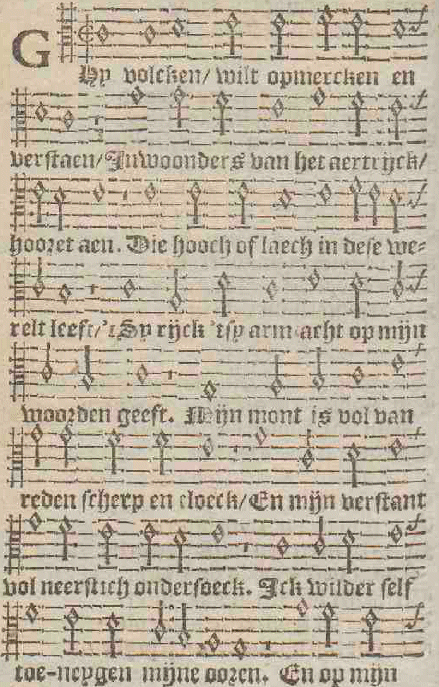 GHy volcken/ wilt opmercken en
verstaen/ Inwoonders van het aertrijck/
hooret aen. Die hooch of laech in dese we-
relt leeft/ 'tSy rijck 'tsy arm acht op mijn
woorden geeft. Mijn mont is vol van
reden scherp en cloeck/ En mijn verstant
vol neerstich ondersoeck. Ick wilder self
toe-neygen mijne ooren. En op mijn